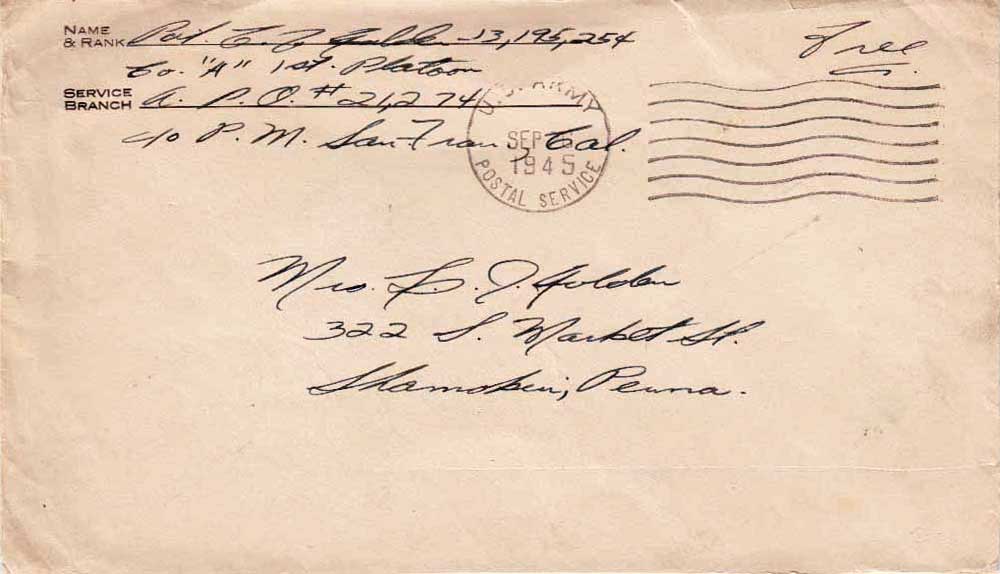 NAME
& RANK Pvt. C. J. Golden 13,195,254
Co. "A" 1st. Platoon
SERVICE
BRANCH A. P. O. # 21,274
c/o P. M. San Fran, Cal.
Free
U.S. ARMY
SEP
1945
POSTAL SERVICE
Mrs. F. J. Golden
322 S. Market St.
Shamokin, Penna.